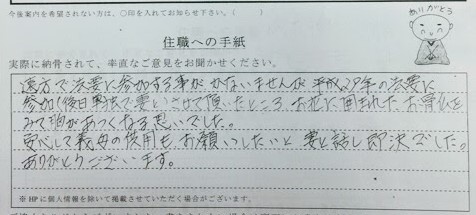 今後案内を希望されない方は、○印を入れてお知らせ下さい。（　　）
ありがとう
住職への手紙
実際に納骨されて、率直なご意見をお聞かせください。
遠方で法要に参加する事がかないませんが 平成29年の法要に
参加(後日 にて妻とさせて頂いたところ、お花に囲まれたお骨仏を
みて胸があつくなる思いでした。
安心して義母の供用も、お願いしたいと 妻と話し 即決でした。
ありがとうございます。
※HPに個人情報を除いて掲載させていただく場合がございます。